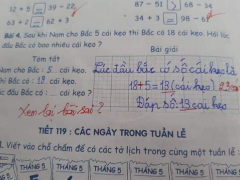 5 + 2 = 39 - 22
87 - 51 68 - 14
34 + 3 98 - 61
Bài 4. Sau khi Nam cho Bắc 5 cái kẹo thì Bắc có 18 cái kẹo. Hỏi lúc
đầu Bắc có bao nhiêu cái kẹo ?
Tóm tắt
Bài giải
Nam cho Bắc : 5 cái kẹo
Lúc đầu bắc có số cái kẹo là
Bắc có : 13 cái kẹo
18+5=13(cái kẹo)
Lúc đầu Bắc có : ... cái kẹo ?
Đáp số: 13 cái kẹo
Xem lại bài sao?
TIẾT 119 : CÁC NGÀY TRONG TUẦN LỄ
1. Viết vào chỗ chấm để có các tờ lịch trong cùng một tuần lễ :
THÁNG 5 THÁNG 5 THÁNG 5 THÁNG 5